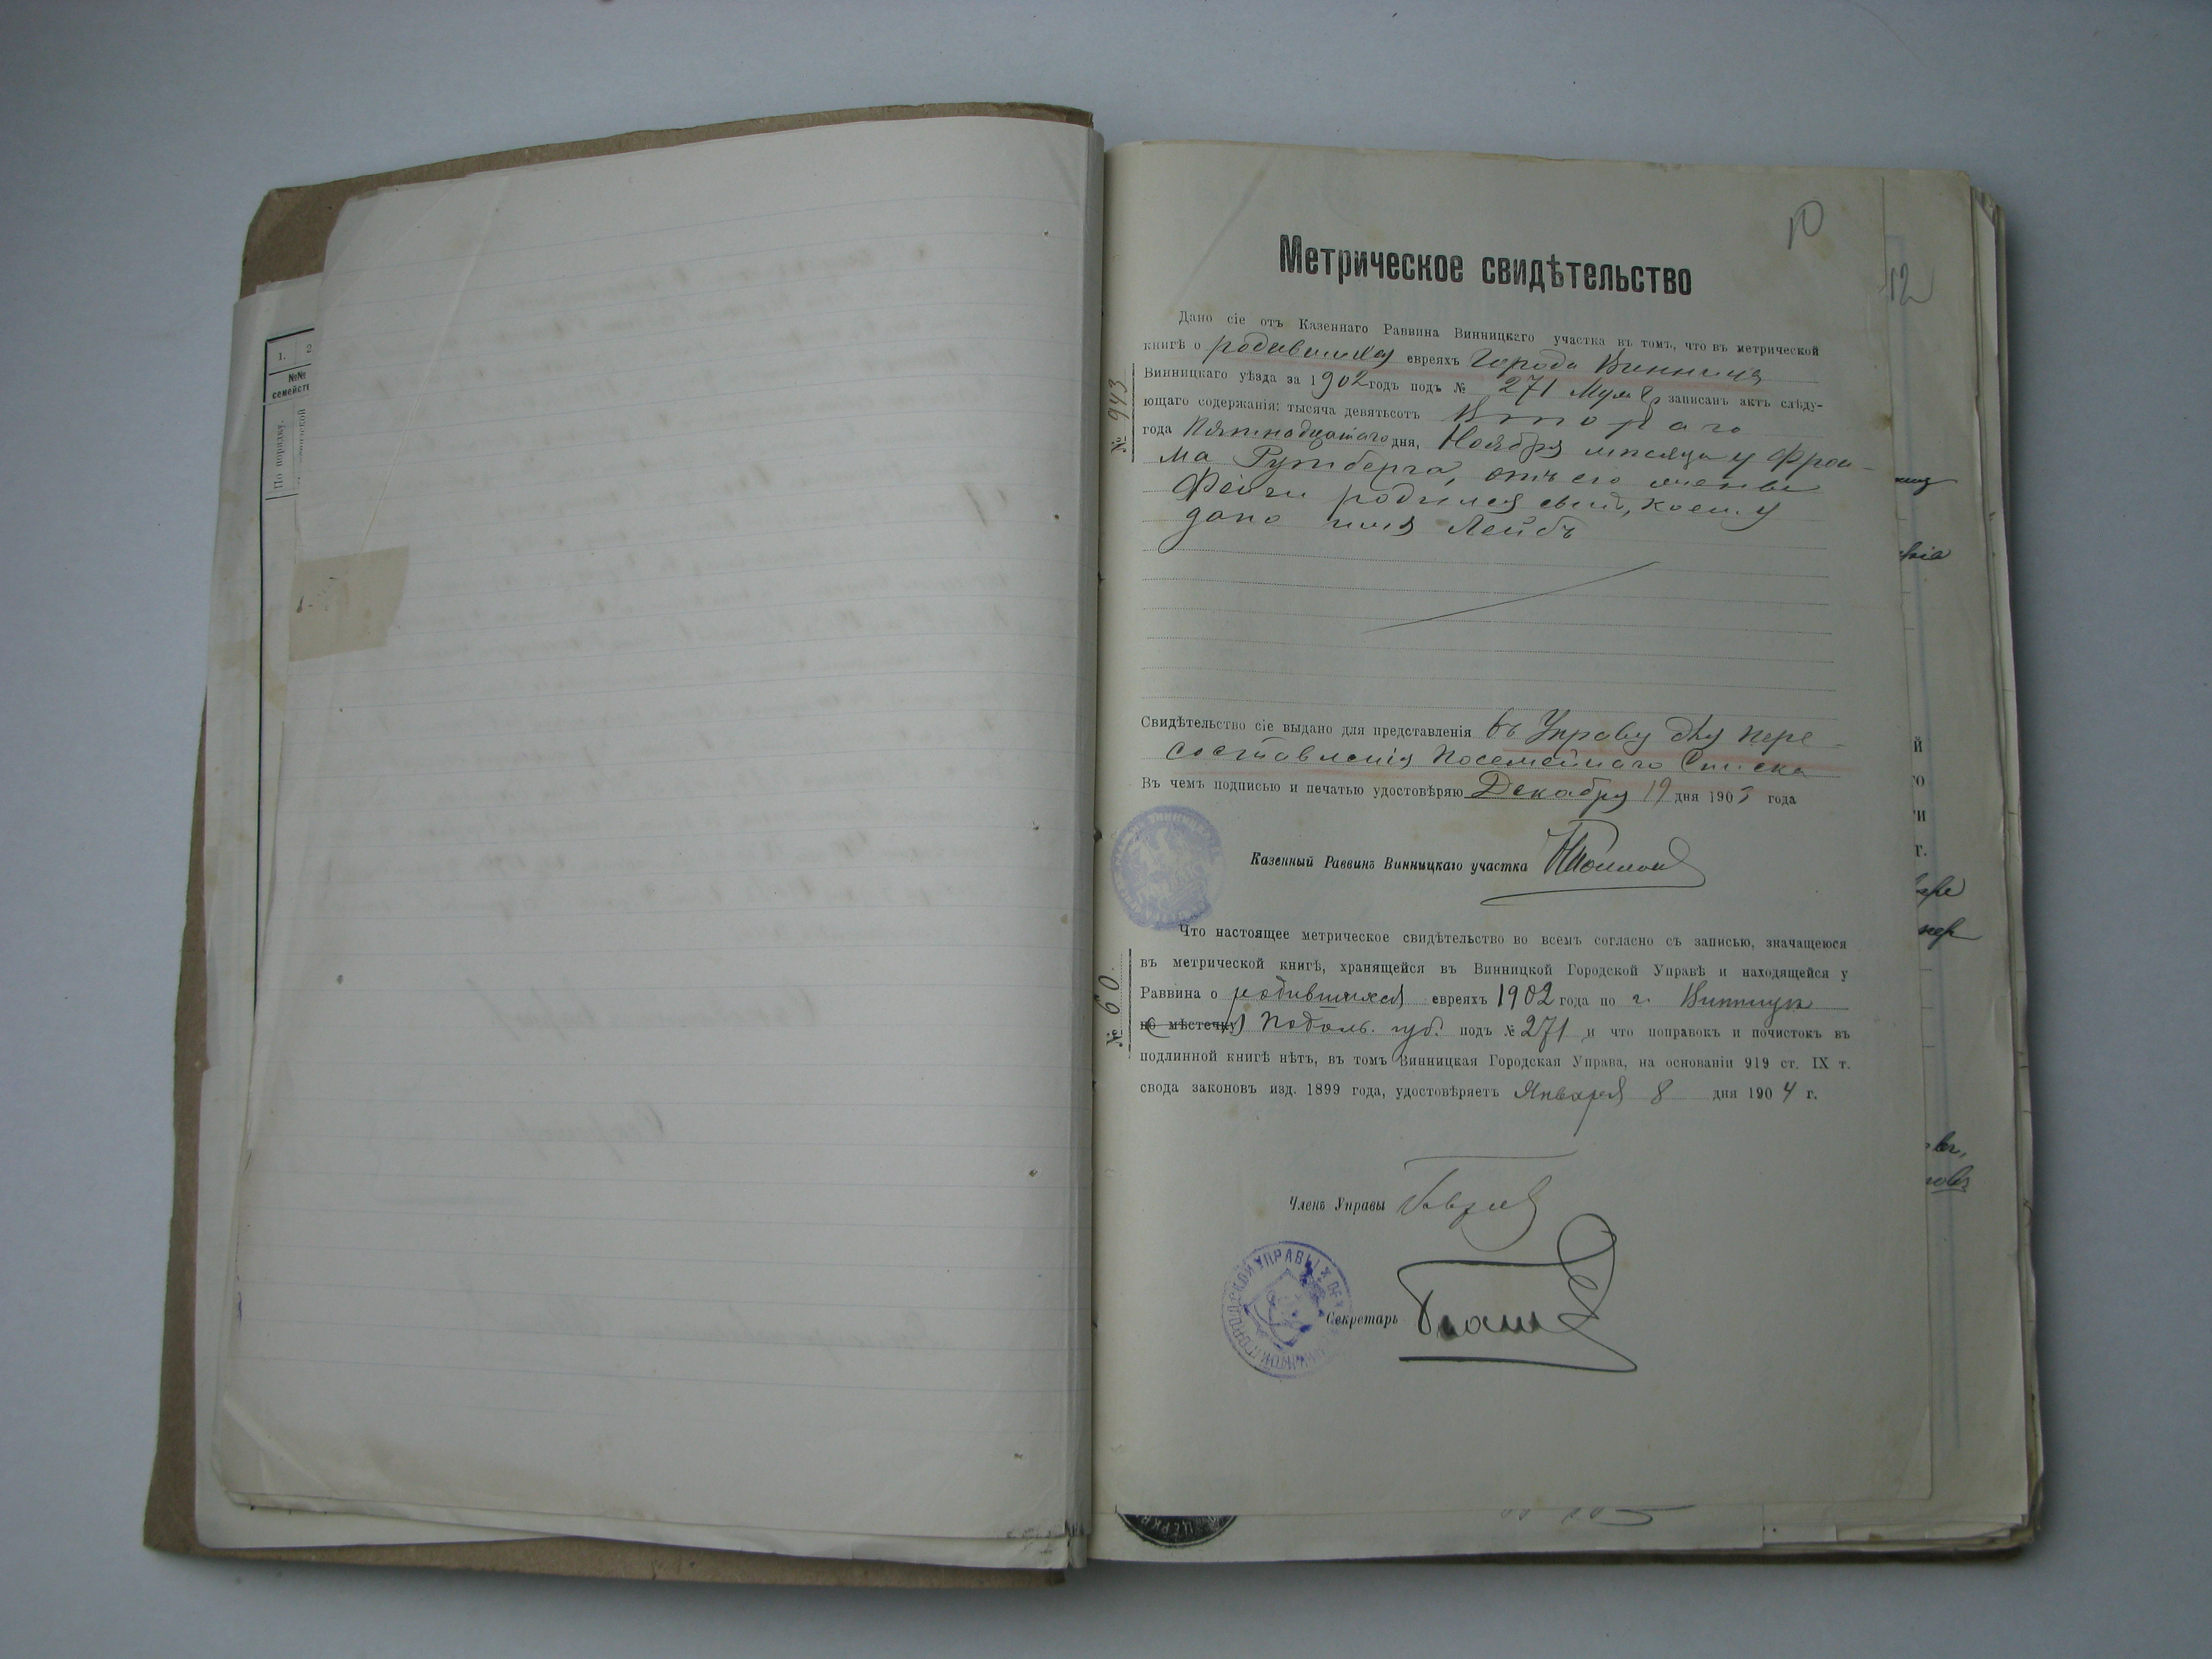 1.
2
№№
семейст
По порядку.
10
12
Метрическое свидѣтельство
№ 943
Дано сіе отъ Казеннаго Раввина Винницкаго участка въ томъ, что въ метрической
книгѣ о родившихся евреяхъ Города Винница
Винницкаго уѣзда за 1902 годъ подъ № 271 Муж записанъ актъ слѣду-
ющаго содержанія: тысяча девятьсотъ Втораго
года Пятнадцатаго дня, Ноября мѣсяца у Фрои-
ма Рутберга, отъ его жены
Фейги родился сынъ, коему
дано имя Лейбъ
Свидѣтельство сіе выдано для представленія въ Управу для пере-
составленія Посемейнаго Списка
Въ чемъ подписью и печатью удостовѣряю Декабря 19 дня 1903 года
Казенный Раввинъ Винницкаго участка
№ 60.
Что настоящее метрическое свидѣтельство во всемъ согласно съ записью, значащеюся
въ метрической книгѣ, хранящейся въ Винницкой Городской Управѣ и находящейся у
Раввина о родившихся евреяхъ 1902 года по г. Винницы
(по мѣстечку) Подоль. губ. подъ № 271 и что поправокъ и почистокъ въ
подлинной книгѣ нѣтъ, въ томъ Винницкая Городская Управа, на основаніи 919 ст. IX т.
свода законовъ изд. 1899 года, удостовѣряетъ Января 8 дня 1904 г.
Членъ Управы
ГОРОДСКОЙ УПРАВЫ
Секретарь